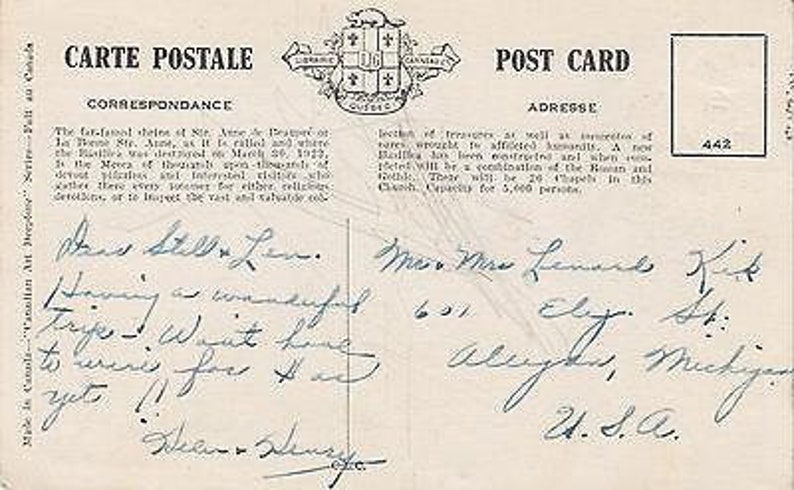 CARTE POSTALE
POST CARD
LIBRAIRIE GARNEAU
QUEBEC
CORRESPONDANCE
ADRESSE
442
The far-famed shrine of Ste. Anne de Beaupré or
La Bonne Ste. Anne, as it is called and where
the Basilica was destroyed on March 29, 1922,
is the Mecca of thousands upon thousands of
devout pilgrims and interested visitors who
gather there every summer for either religious
devotions, or to inspect the vast and valuable col-
lection of treasures as well as mementos of
cures wrought to afflicted humanity. A new
Basilica has been constructed and when com-
pleted will be a combination of the Roman and
Gothic. There will be 20 Chapels in this
Church. Capacity for 5,000 persons.
Made in Canada—"Canadian Art Deeptone" Series—Fait au Canada
Dear Still & Len.
Having a wonderful
trip - Want have
to wire for
yet !!
Helen & Henry
Mr & Mrs Lenard Kik
601 Ely. St.
Allegan, Michigan
U.S.A.